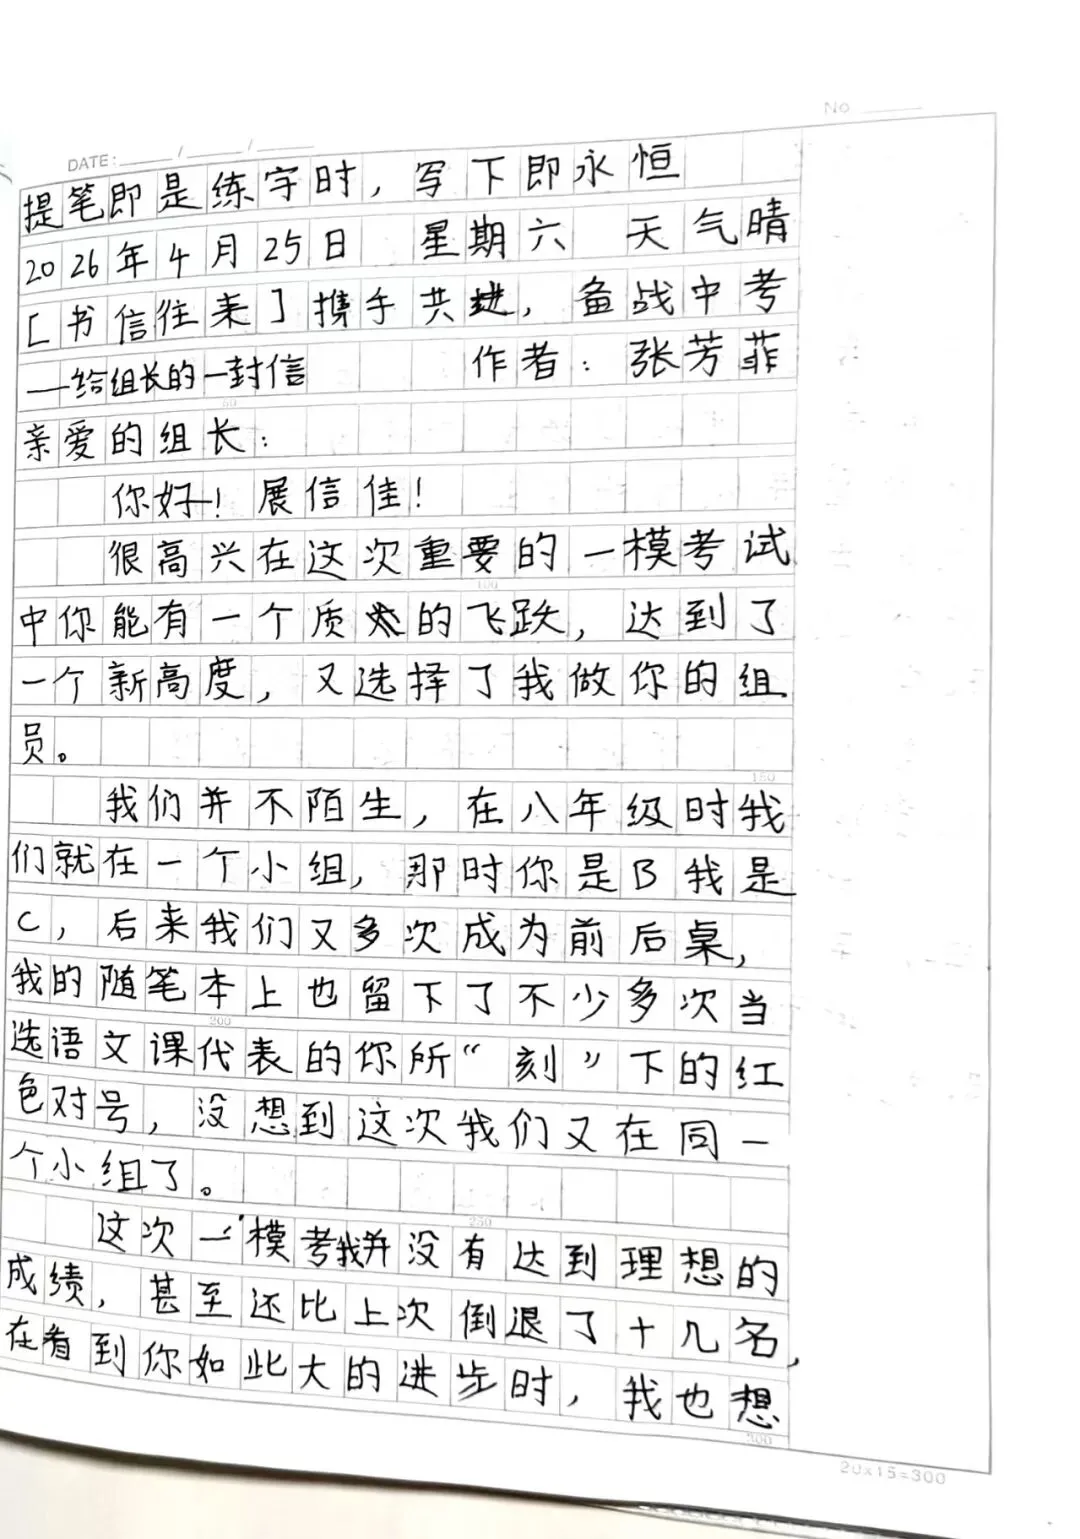 No
DATE: / /
提笔即是练字时，写下即永恒
2026年4月25日 星期六 天气晴
［书信往来］携手共进，备战中考
——给组长的一封信 作者：张芳菲
亲爱的组长：
你好！展信佳！
很高兴在这次重要的一模考试
中你能有一个质的飞跃，达到了
一个新高度，又选择了我做你的组
员。
我们并不陌生，在八年级时我
们就在一个小组，那时你是B我是
C，后来我们又多次成为前后桌，
我的随笔本上也留下了不少多次当
选语文课代表的你所“刻”下的红
色对号，没想到这次我们又在同一
个小组了。
这次一模考我并没有达到理想的
成绩，甚至还比上次倒退了十几名，
在看到你如此大的进步时，我也想
20×15=300